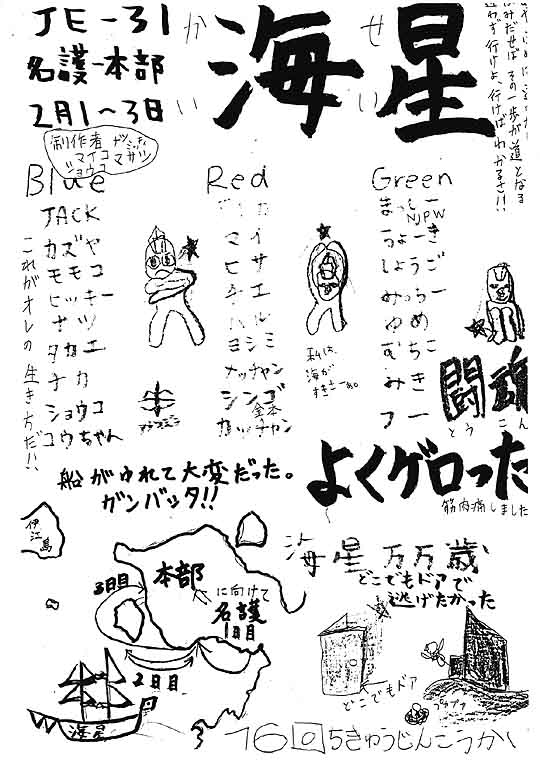 JE-31
名護-本部
2月1~3日
かいせい
海星
ふみだせば その一歩が道となる
迷わず行けよ、行けばわかるさ!!
制作者
マイコ
ショウコ
Blue
JACK
カズヤ
モモコ
ヒッキー
ナツ
タカエ
チカ
ショウコ
コウちゃん
これがオレの生き方だ!!
Red
マイ
ヒサ
ヨシミ
ナッチャン
シンゴ
金本
カッチャン
私は、
海が
Green
NJPW
ちょーき
しょうご
みっちー
ゆうめ
むちこ
みき
フー
闘魂
とうこん
船がゆれて大変だった。
ガンバッタ!!
よくゲロった
筋肉痛しました
伊江島
3日目
本部
に向けて
名護
1日目
2日目
海星
海星万万歳
どこでもドアで
逃げたかった
どこでもドア
16回ちきゅうじんこうかい